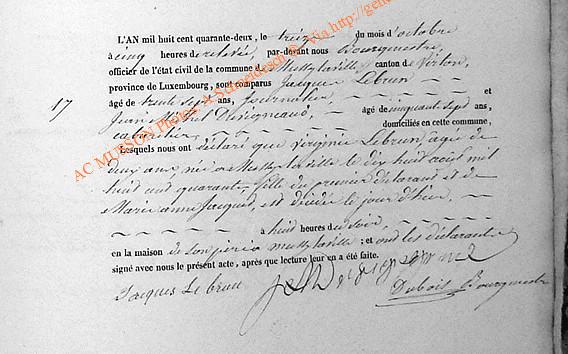 L'AN mil huit cent quarante-deux, le treize du mois d'octobre
à cinq heures de relevée, par-devant nous Bourgmestre,
officier de l'état civil de la commune de canton de Virton,
province de Luxembourg, sont comparus Jacques Lebrun
17
âgé de trente sept ans, journalier,
âgé de cinquante sept ans,
cabaretier, domiciliés en cette commune,
Lesquels nous ont déclaré que Virginie Lebrun, agée de
deux ans, née à Mussy la ville le dix huit août mil
huit cent quarante, fille du premier déclarant et de
Marie anne Jacques, est décédée le jour d'hier,
à huit heures du soir,
en la maison de son père à mussy la ville; et ont les déclarants
signé avec nous le présent acte, après que lecture leur en a été faite.
Jacques Lebrun
Dubois Bourgmestre
AC MUSSON Photos: A Schneidesch © - Via http://gen